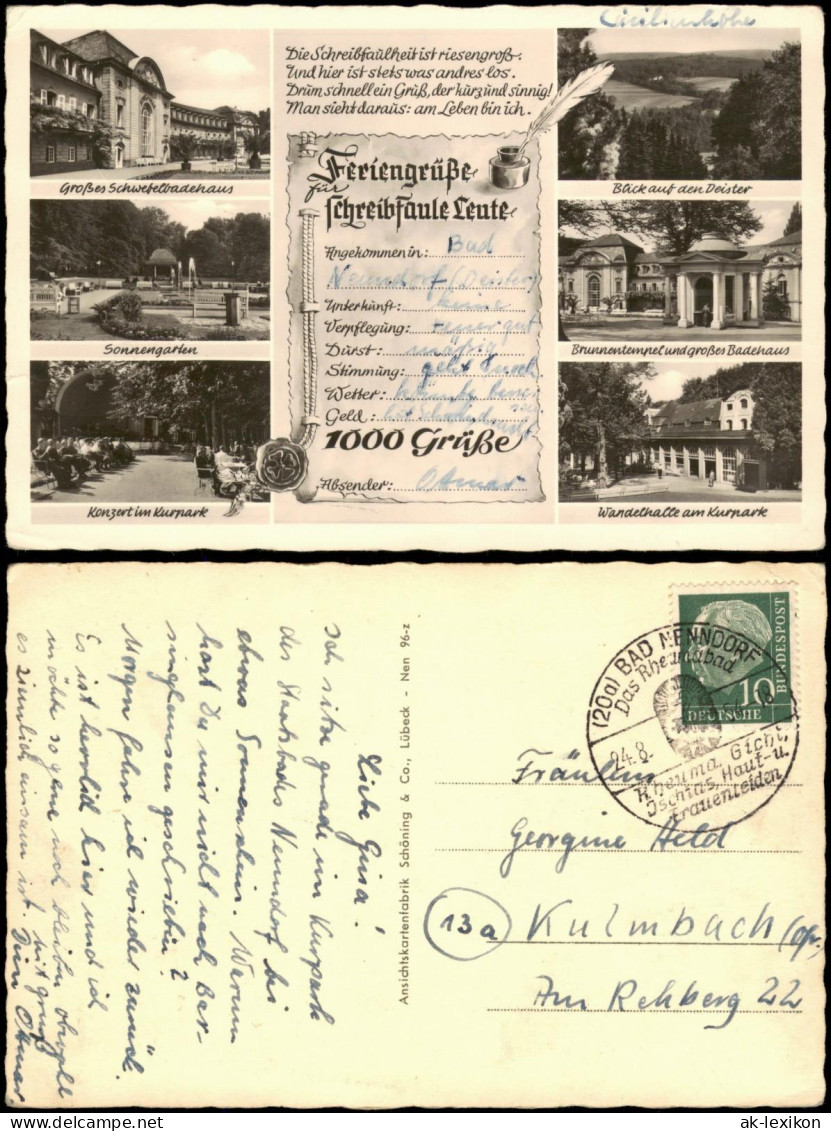 Cäcilienhöhe
Die Schreibfaulheit ist riesengroß.
Und hier ist stets was andres los.
Drum schnell ein Gruß, der kurz und sinnig!
Man sieht daraus: am Leben bin ich.
Großes Schwefelbadehaus
Sonnengarten
Konzert im Kurpark
Feriengrüße
für
schreibfaule Leute
Angekommen in: Bad
Nenndorf (Deister)
Unterkunft: keine
Verpflegung: sehr gut
Durst: mäßig
Stimmung: geht durch
Wetter: könnte besser
sein
Geld:
1000 Grüße
Absender: Ottmar
Blick auf den Deister
Brunnentempel und großes Badehaus
Wandelhalle am Kurpark
Liebe Gina!
Ich sitze gerade im Kurpark
des Staatsbades Nenndorf bei
etwas Sonnenschein. Warum
hast Du mir nicht nach Bar-
singhausen geschrieben?
Morgen fahre ich wieder zurück.
Es ist herrlich hier und ich
möchte so gerne noch bleiben obwohl
es ziemlich einsam ist. Mit Gruß
Dein Ottmar
Ansichtskartenfabrik Schöning & Co., Lübeck - Nen 96-z
(20a) BAD NENNDORF
Das Rheumabad
24.8.
Rheuma, Gicht,
Ischias, Haut- u.
Frauenleiden
10
DEUTSCHE
BUNDESPOST
Fräulein
Georgine Held
13a Kulmbach/Ofr.
Am Rehberg 22
www.ak-ansichtskarten.de
ak-lexikon